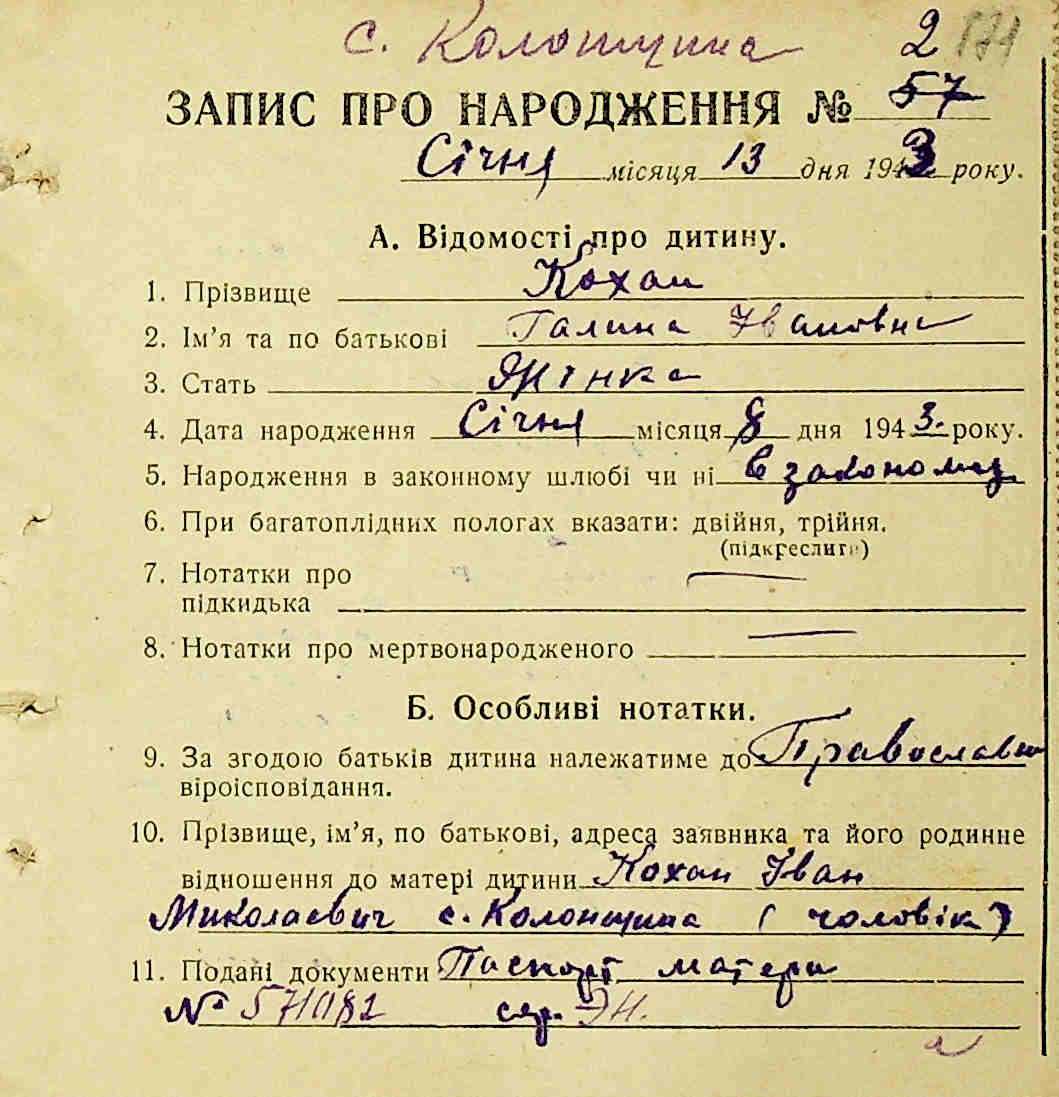 с. Колонщина 2 171
ЗАПИС ПРО НАРОДЖЕННЯ № 57
Січня місяця 13 дня 1943 року.
А. Відомості про дитину.
1. Прізвище Кохан
2. Ім'я та по батькові Галина Івановна
3. Стать Жінка
4. Дата народження Січня місяця 8 дня 1943. року.
5. Народження в законному шлюбі чи ні в законому
6. При багатоплідних пологах вказати: двійня, трійня.
(підкреслити)
7. Нотатки про —
підкидька
8. Нотатки про мертвонародженого —
Б. Особливі нотатки.
9. За згодою батьків дитина належатиме до Православн
віроісповідання.
10. Прізвище, ім'я, по батькові, адреса заявника та його родинне
відношення до матері дитини Кохан Іван
Миколаевич с. Колонщина (чоловік)
11. Подані документи Паспорт матери
№ 571082 сер. ЭН.